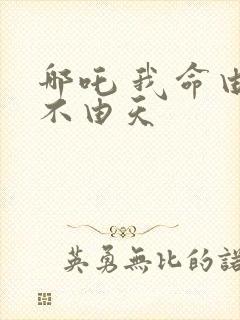 哪吒我命由
不由天
英勇無比的諾